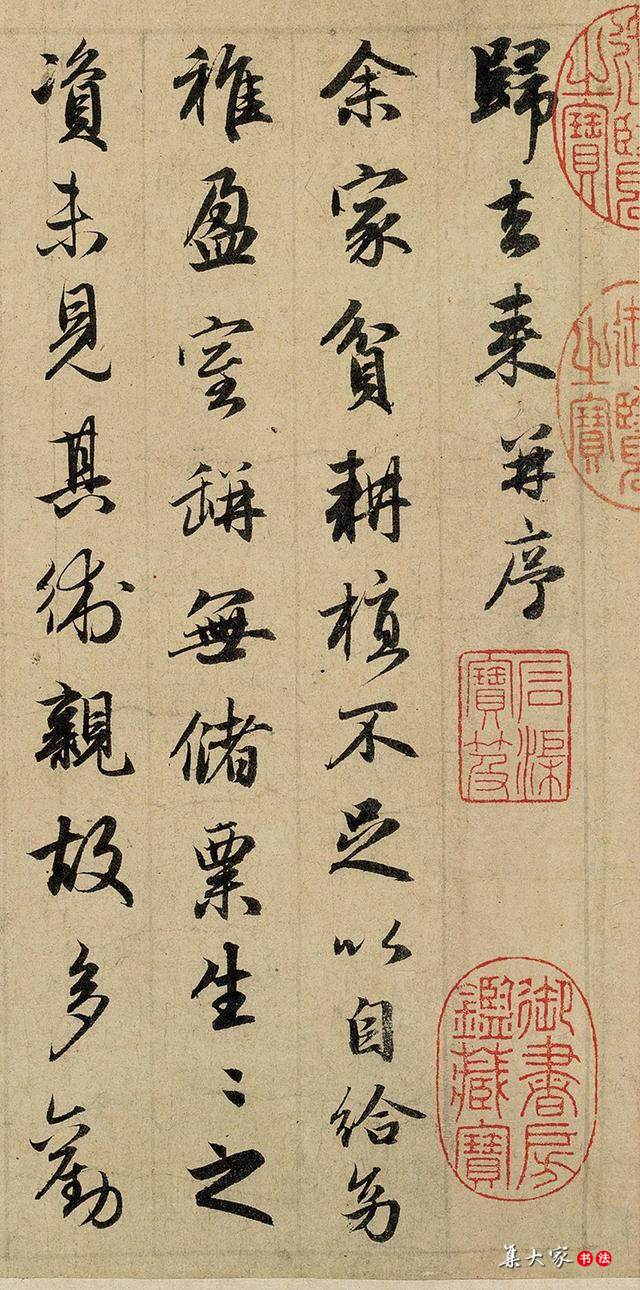 歸去来并序
余家貧耕植不足以自給幼
稚盈室缾無儲粟生〻之
資未見其術親故多勸
御書房鑑藏寶
集大家书法